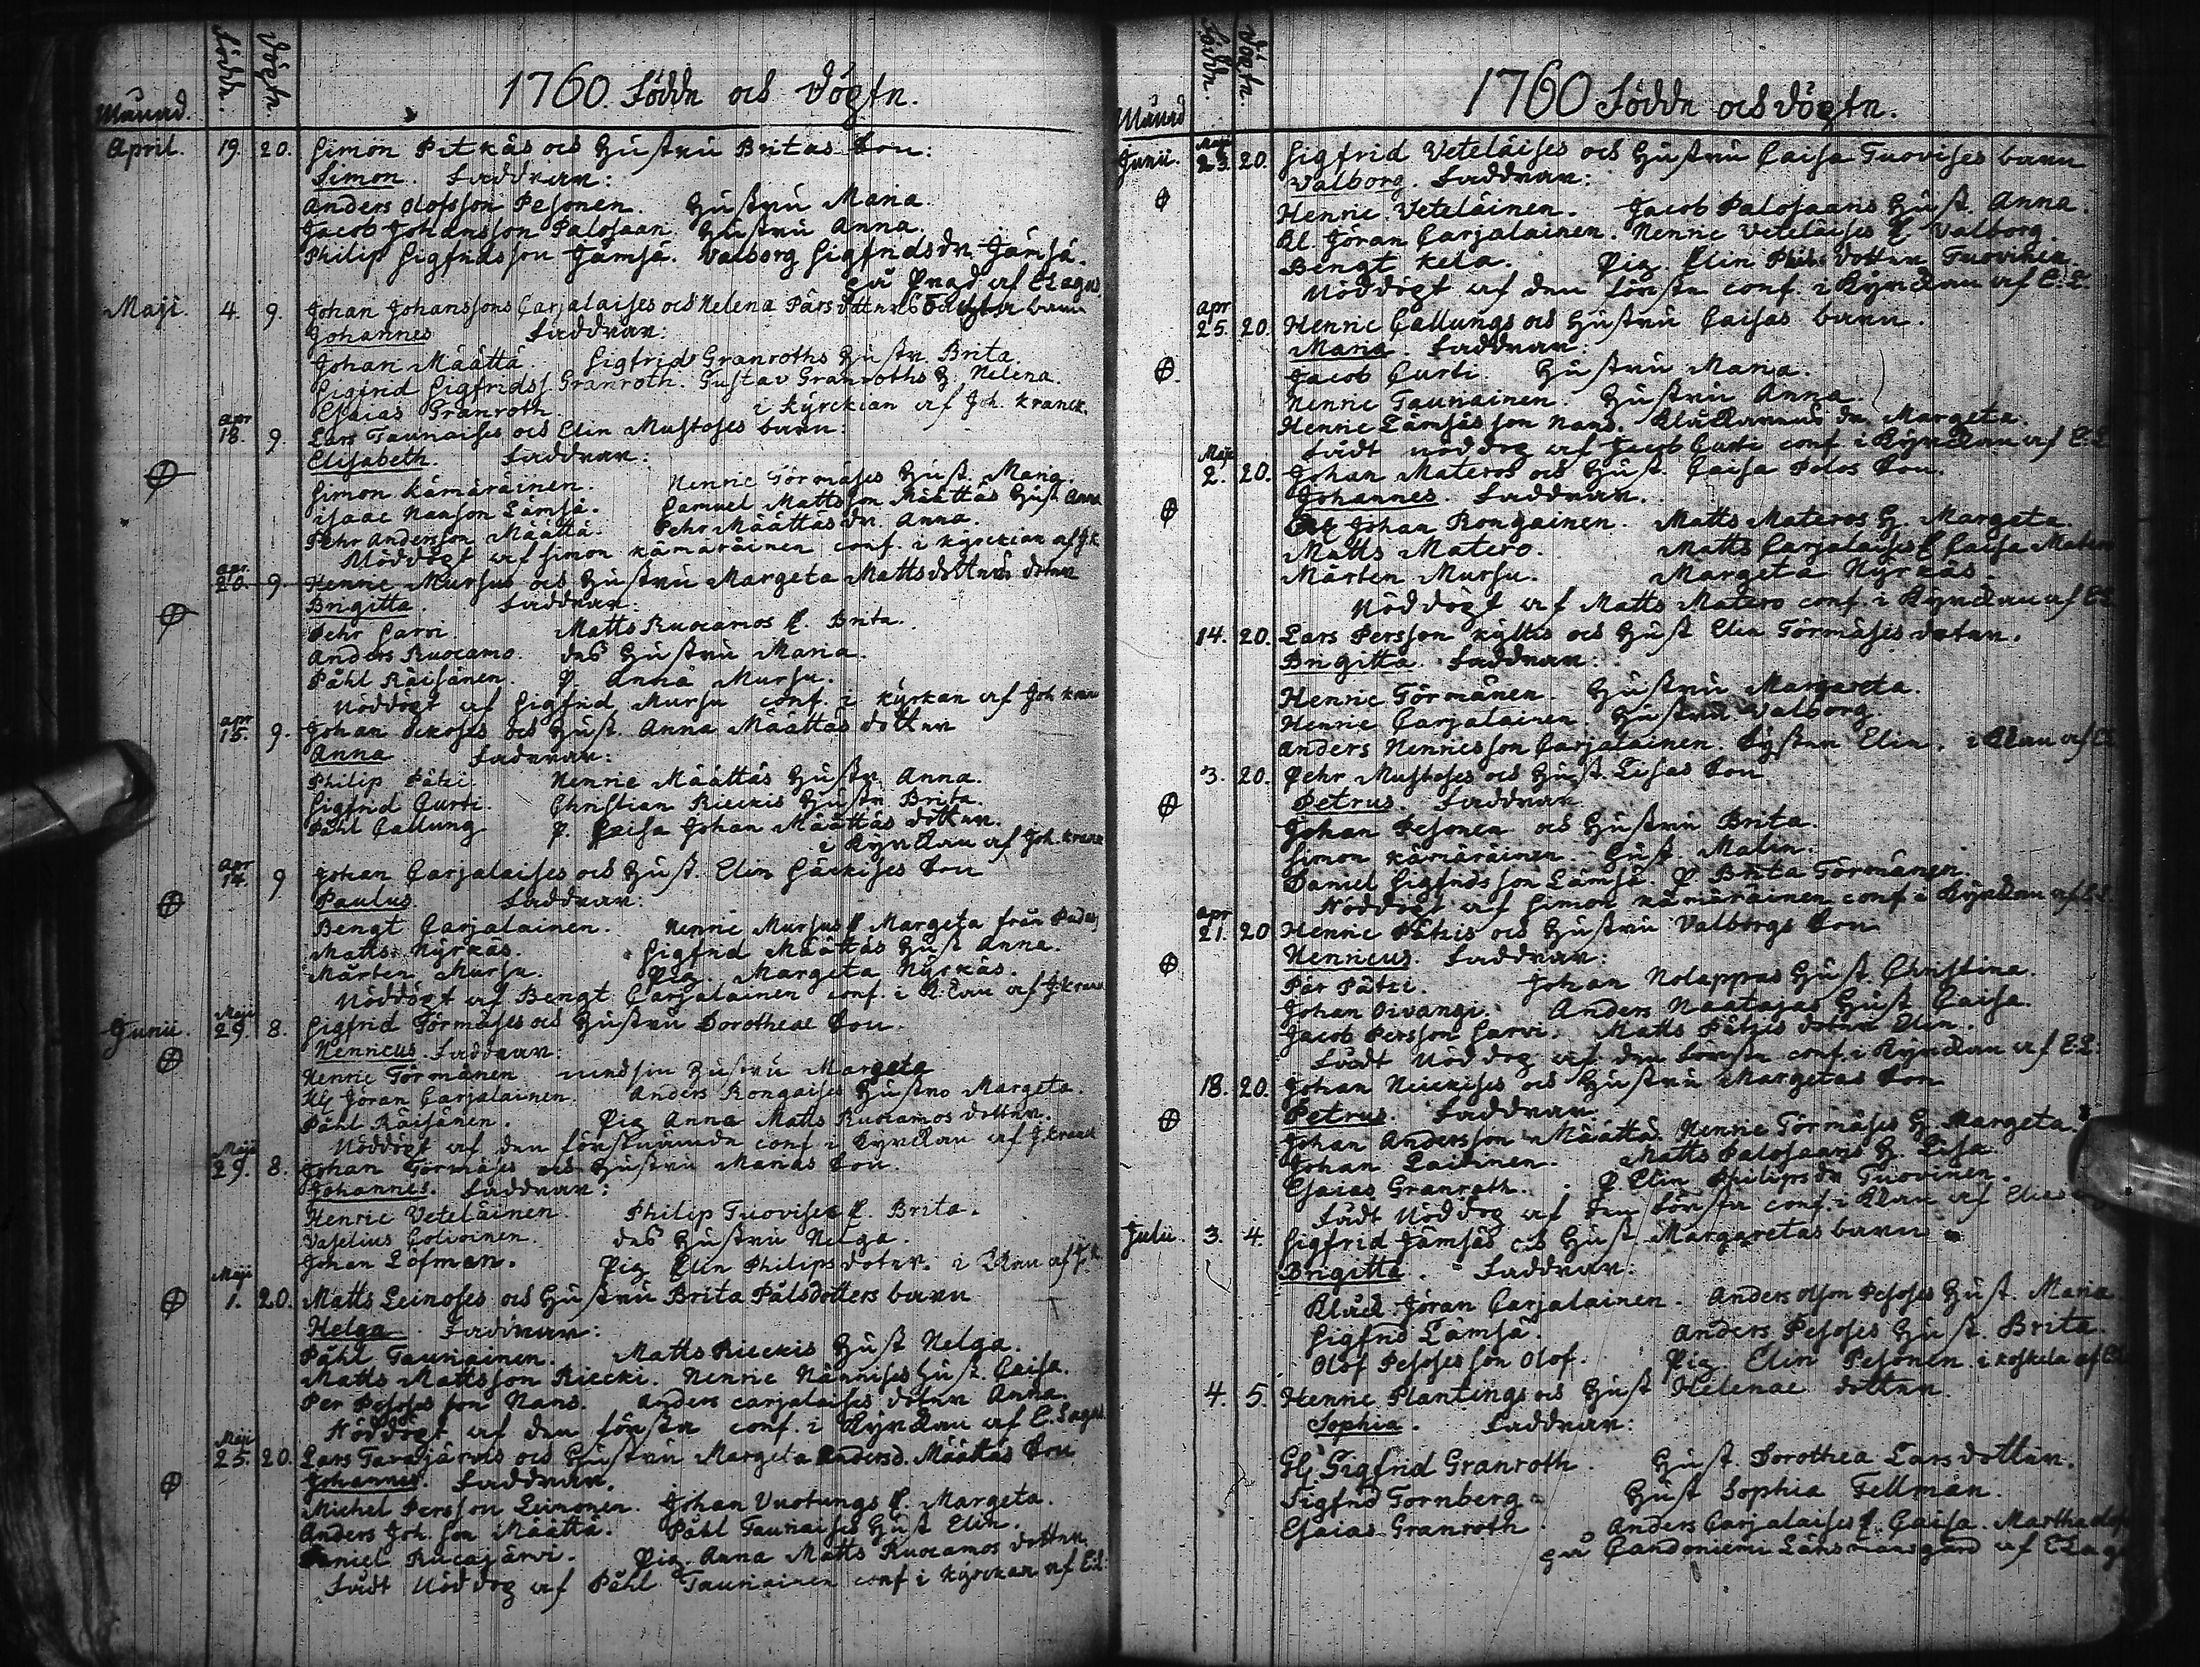 Månad. Födde. Dögte.
1760. Födde och Dögte.
April. 19. 20. Simon Pitkäs och Hustru Britas Son:
Simon. Faddrar:
Anders Olofsson Pesonen. Hustru Maria.
Jacob Johansson Palosaari. Hustru Anna.
Philip Sigfridsson Jämsä. Valborg Sigfridsdr Jämsä.
af E Lagus
Maji. 4. 9. Johan Johanssons Carjalaises och Helena Pärsdotters barn
Johannes Faddrar:
Johan Määttä. Sigfrid Granroths Hustr. Brita.
Sigfrid Sigfridss. Granroth. Gustav Granroths H. Helena.
Esaias Granroth. i Kyrckian af Joh. Kranck.
apr 18. 9. Lars Taunaises och Elin Mustoses barn:
Elisabeth. Faddrar:
Simon Kämäräinen. Henric Törmäses Hust. Maria.
Isaac Hansson Lämsä. Samuel Mattsson Määttäs Hust Anna
Pehr Andersson Määttä. Pehr Määttäs dr. Anna.
Nöddögt af Simon Kämäräinen conf. i Kyrckian af J.K.
apr. 20. 9 Henric Mursus och Hustru Margeta Mattsdotters dotter
Brigitta. Faddrar:
Pehr Sarvi. Matts Ruocamos P. Brita.
Anders Ruocamo. des Hustru Maria.
Påhl Räisänen. P. Anna Mursu.
Nöddögt af Sigfrid Mursu conf. i Kyrkan af Joh Kran
apr 15. 9. Johan Ockoses och Hust. Anna Määttäs dotter
Anna Faddrar:
Philip Pätzi Henric Määttäs Hustr. Anna.
Sigfrid Curti. Christian Rieckis Hustr Brita.
Påhl Callung P. Caisa Johan Määttäs dotter.
i Kyrckan af Joh. Kranc
apr 14. 9 Johan Carjalaises och Hust. Elin Säckises Son
Paulus Faddrar:
Bengt Carjalainen. Henric Mursus P Margeta från
Matts Nyrkäs. Sigfrid Määttäs Hust Anna.
Mårten Mursu. Pig. Margeta Nyrkäs.
Nöddögt af Bengt Carjalainen conf. i K:kan af J Kran
Junii. Maji 29. 8. Sigfrid Törmäses och Hustru Dorotheae Son
Henricus. Faddrar:
Henric Törmänen med sin Hustru Margeta
Kl. Jöran Carjalainen. Anders Rongaises Hustro Margeta
Påhl Räisänen. Pig Anna Matts Ruocamos dotter.
Nöddögt af den förstnämde conf. i Kyrckan af J. Kranck
Maji 29. 8. Johan Törmäses och Hustru Marias Son.
Johannes. Faddrar:
Henric Veteläinen. Philip Tuovises P. Brita.
Vaselius Goloinen. des Hustru Helga.
Johan Löfman. Pig Elin Philips doter. i K:kan af J.K.
Maji 1. 20. Matts Leinoses och Hustru Brita Pålsdotters barn
Helga. Faddrar:
Påhl Taunainen. Matts Rieckis Hust Helga.
Matts Mattsson Riecki. Henric Hännises Hust. Caisa.
Per Pesoses son Hans. Anders Carjalaises doter Anna.
Nöddögt af den förste conf. i Kyrckan af E. Lagus
Maji 25. 20. Lars Tavajärvis och Hustru Margeta Andersd. Määttäs Son
Johannes. Faddrar.
Michel Persson Leinonen. Johan Vuotungs P. Margeta.
Anders Joh. son Määttä. Påhl Taunaises Hust Elin.
Daniel Rucajärvi. Pig. Anna Matts Ruocamos dotter
Fådt Nöddog af Påhl Taunainen conf i Kyrckan af E.L.
Månad Födde. Dögte.
1760 Födde och Dögte.
Junii. Maji 23. 20. Sigfrid Veteläises och Hustru Caisa Tuovises barn
Valborg. Faddrar:
Henric Veteläinen. Jacob Palosaaris Hust. Anna.
Kl. Jöran Carjalainen. Henric Veteläises P Valborg.
Bengt Kela. Pig. Elin Phil: dotter Tuovinen.
Nöddögt af den förste conf. i Kyrckan af E.L.
apr 25. 20. Henric Callungs och Hustru Caisas barn.
Maria. Faddrar:
Jacob Curti. Hustru Maria.
Henric Taunainen. Hustru Anna.
Henric Lämsäs son Hans. Klåckarens dr. Margeta.
Fådt nöddog af Jacob Curti conf. i Kyrckan af E.L
Maji 2. 20. Johan Materos och Hust Caisa Pelos Son.
Johannes. Faddrar.
Johan Rongainen. Matts Materos H. Margeta.
Matts Matero. Matts Carjalaises P Caisa Mater
Mårten Mursu. Margeta Nyrkäs.
Nöddögt af Matts Matero conf. i Kyrckan af E.L
14. 20. Lars Persson Kyllis och Hust Elin Törmäses doter.
Brigitta. Faddrar:
Henric Törmänen. Hustru Margareta.
Henric Carjalainen. Hustru Valborg
Anders Henricsson Carjalainen. Syster Elin. i K:kan af EL
3. 20. Pehr Mustoses och Hust. Lisas Son
Petrus. Faddrar
Johan Pesonen och Hustru Brita.
Simon Kämäräinen. Hust Malin.
Daniel Sigfridsson Lämsä. P Brita Törmänen.
Nöddögt af Simon Kämäräinen conf. i Kyrckan af E.L
apr 21. 20 Henric Pätzis och Hustru Valborgs Son
Henricus. Faddrar:
Pär Pätzi. Johan Nolappas Hust. Christina.
Johan Oivangi. Anders Naatajas Hust Caisa.
Jacob Persson Sarvi. Matts Pätzis doter Elin.
Fådt Nöddog af den förste conf. i Kyrckan af E.L.
18. 20. Johan Heickises och Hustru Margetas Son
Petrus. Faddrar.
Johan Andersson Määttä. Henric Törmäses H. Margeta.
Johan Laitinen. Matts Palosaaris H. Lisa
Esaias Granroth. P. Elin Philipsdr Tuovinen.
Fådt Nöddog af den förste conf. i K:kan af Elias
Julii. 3. 4. Sigfrid Jämsäs och Hust Margaretas barn
Brigitta. Faddrar.
Klåck Jöran Carjalainen. Anders Olsson Pesoses Hust. Maria
Sigfrid Lämsä. Anders Pesoses Hust. Brita.
Olof Pesoses son Olof. Pig. Elin Pesonen. i Koskela af E
4. 5. Henric Plantings och Hust Helenae dotter
Sophia. Faddrar:
Hj. Sigfrid Granroth. Hust. Dorothea Lars dotter.
Sigfrid Tornberg. Hust Sophia Fellman.
Esaias Granroth. Anders Carjalaises P Caisa. Martha
på Candoniemi Länsmansgård af E Lag